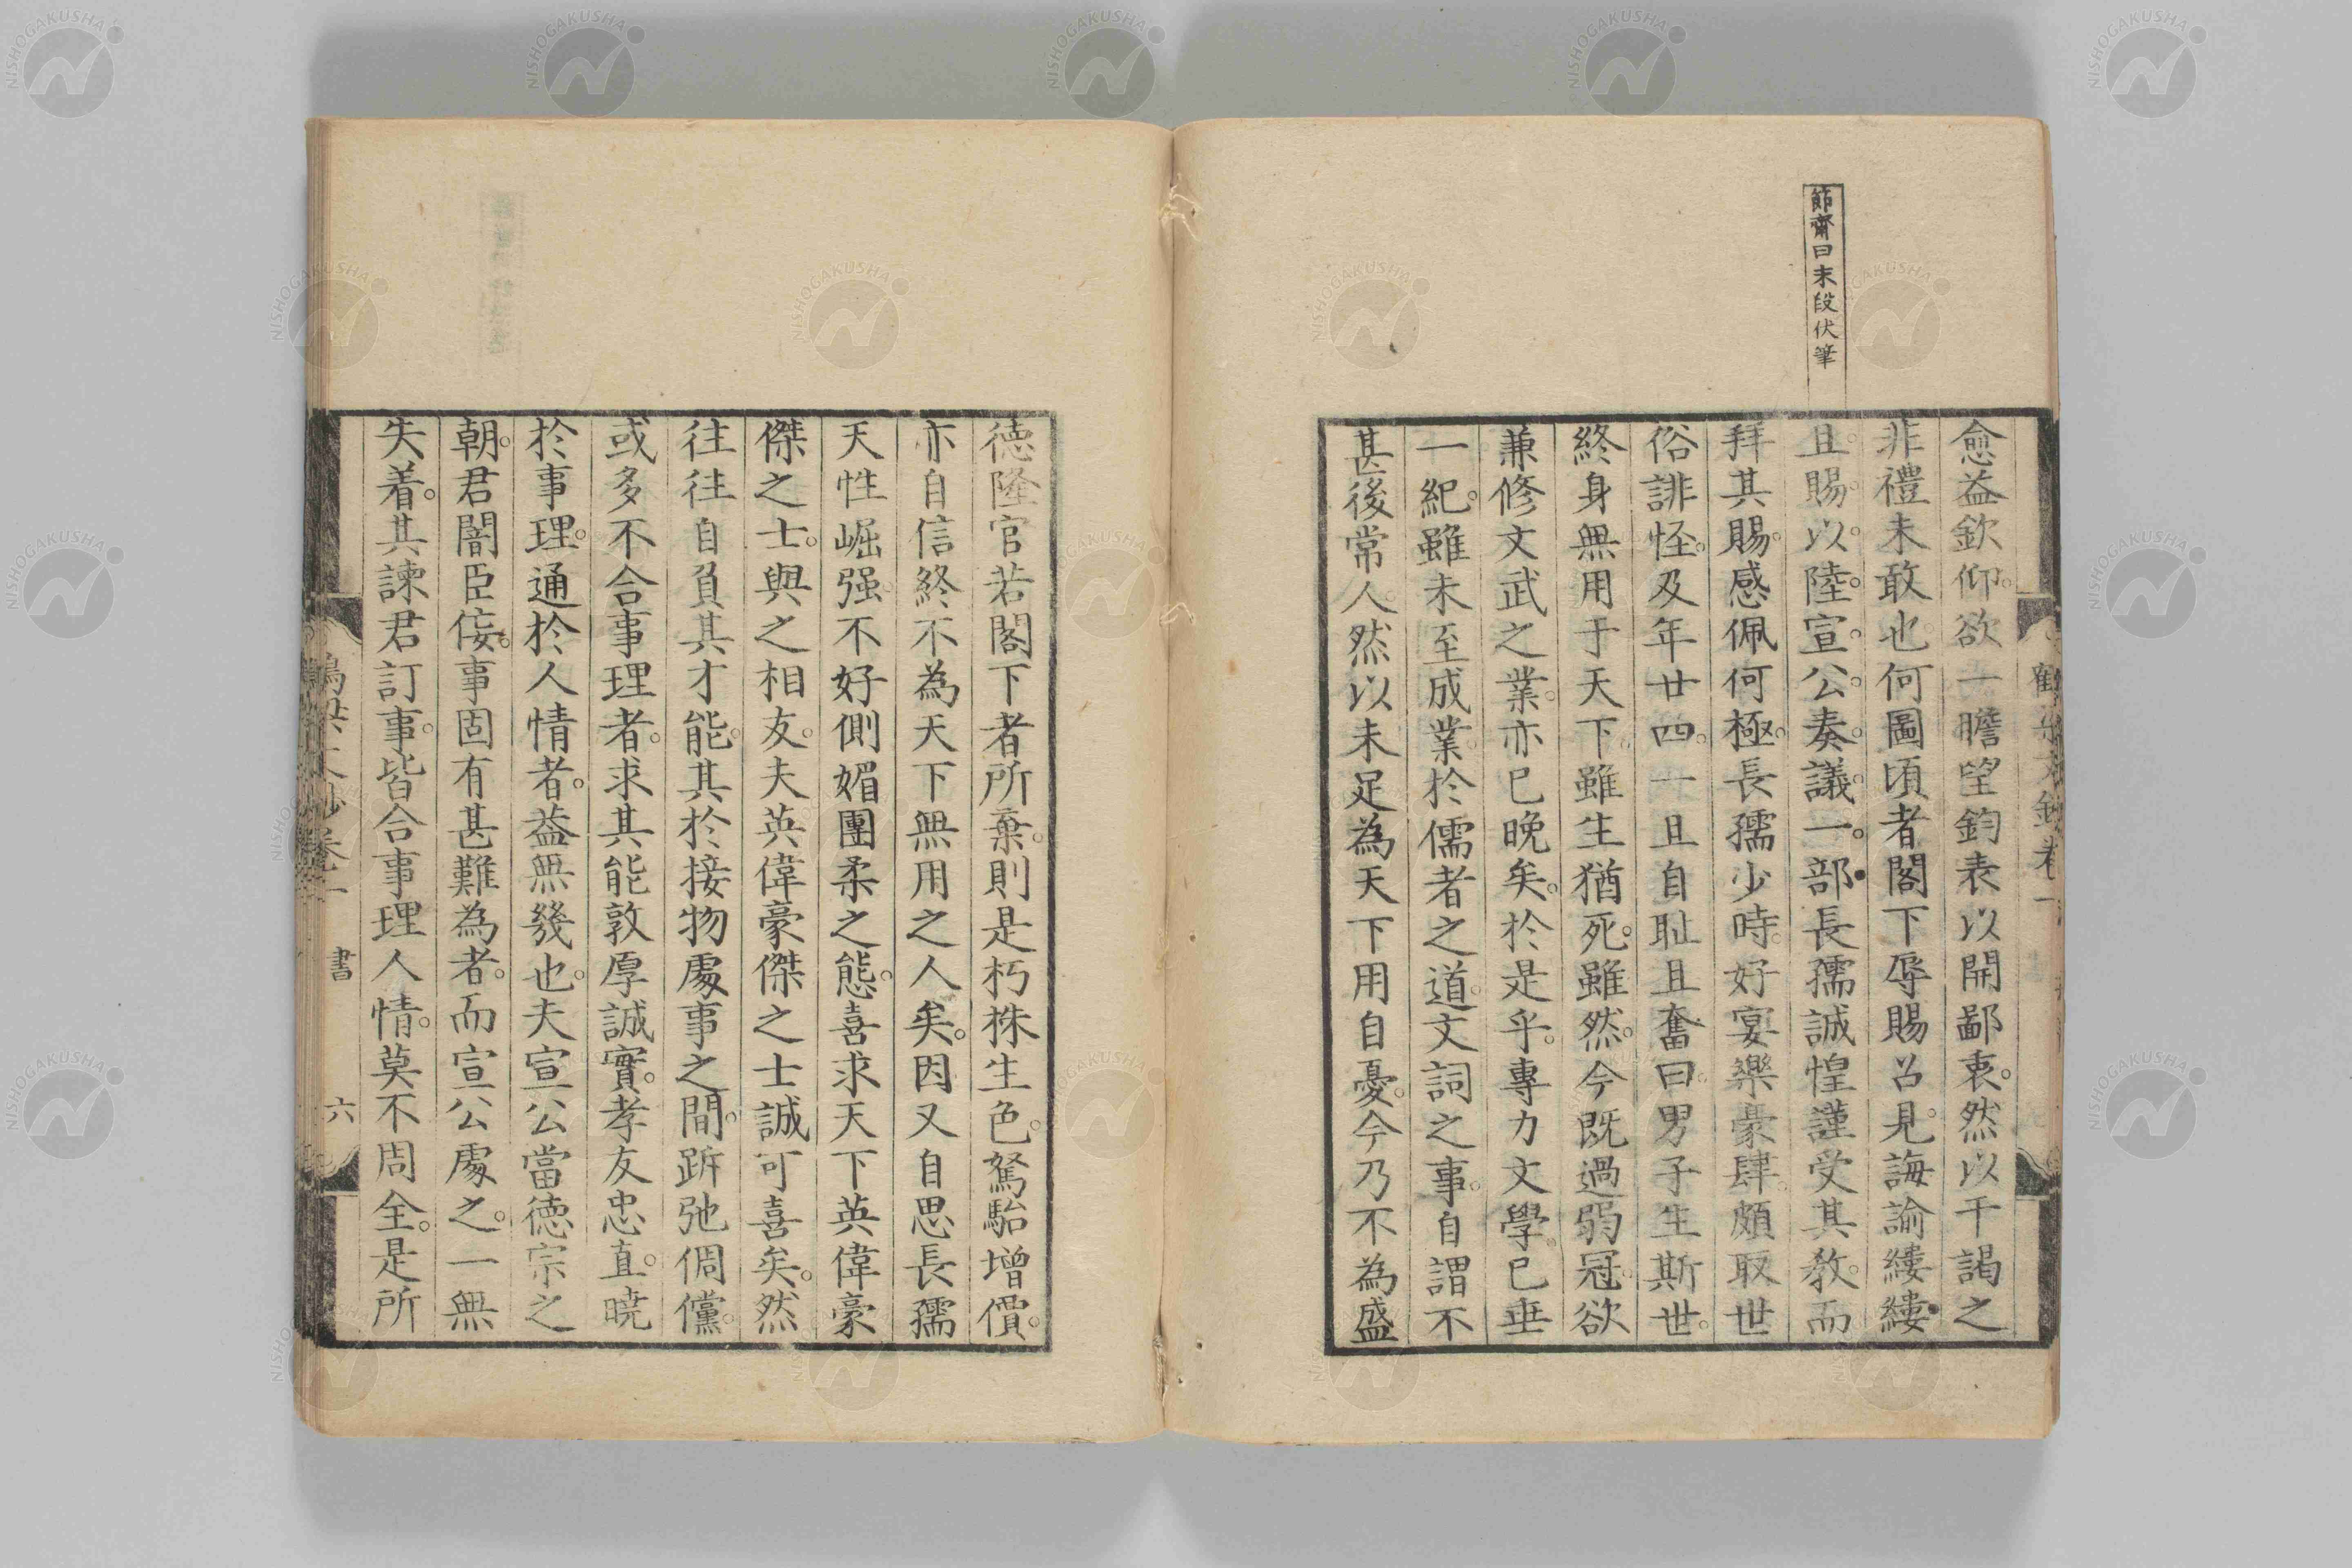 節齋曰末段伏筆
愈益欽仰。欲一瞻望鈞表以開鄙衷。然以干謁之
非禮未敢也。何圖頃者閣下辱賜召見。誨諭縷縷
且賜以陸宣公奏議一部長孺誠惶謹受其教。而
拜其賜。感佩何極。長孺少時。好宴樂豪肆。頗取世
俗誹怪。及年廿四。一旦自耻且奮曰。男子生斯世。
終身無用于天下。雖生猶死。雖然。今既過弱冠。欲
兼修文武之業。亦已晚矣。於是乎。專力文學。已垂
一紀。雖未至成業。於儒者之道。文詞之事。自謂不
甚後常人。然以未足為天下用自憂。今乃不為盛
德隆官若閣下者所棄。則是朽株生色。駑駘增價。
亦自信終不為天下無用之人矣。因又自思長孺
天性崛强。不好側媚團柔之態。喜求天下英偉豪
傑之士。與之相友。夫英偉豪傑之士誠可喜矣。然
往往自負其才能。其於接物處事之間。跅弛倜儻。
或多不合事理者。求其能敦厚誠實。孝友忠直。曉
於事理。通於人情者。益無幾也。夫宣公當德宗之
朝。君闇臣侫。事固有甚難為者。而宣公處之。一無
失着。其諫君訂事。皆合事理人情。莫不周全。是所
書
六